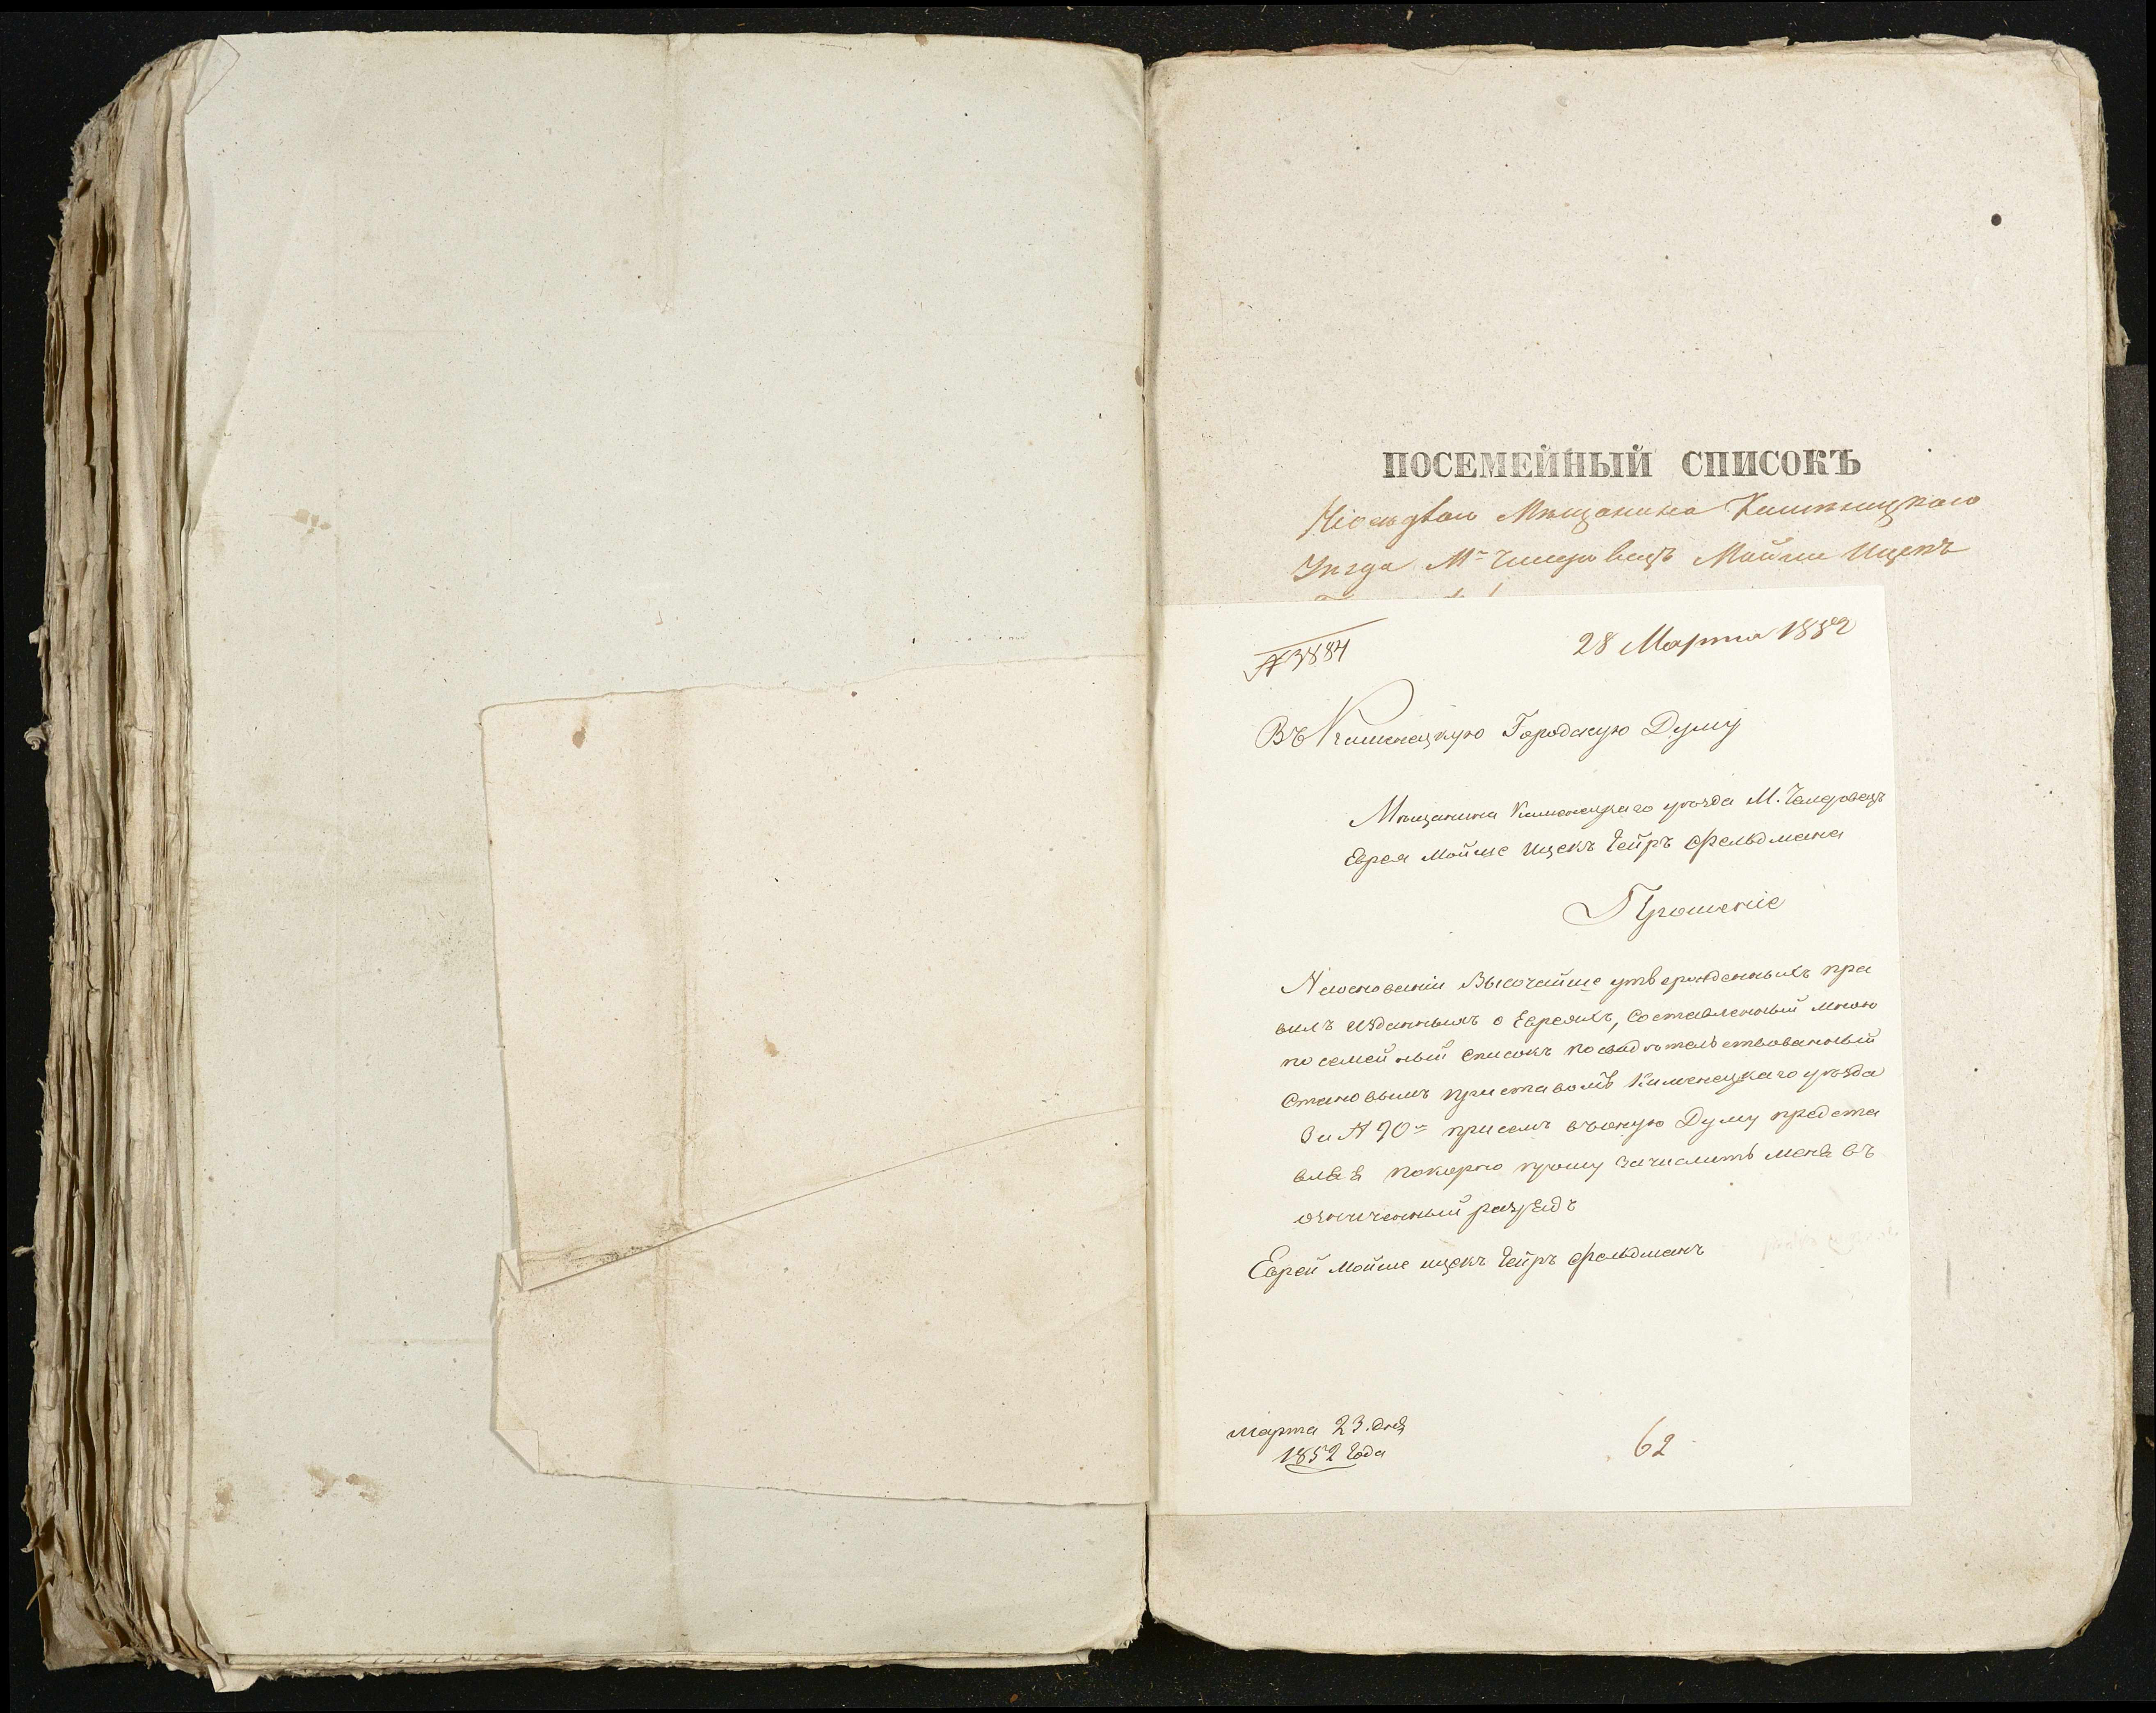 ПОСЕМЕЙНЫЙ СПИСОКЪ
Мѣщанина Каменицкаго
Уѣзда Мѣ Чемеровецъ Мойше Ицекъ
№ 3884
28 Марта 1852
Въ Каменецкую Городскую Думу
Мѣщанина Каменецкаго уѣзда М. Чемеровецъ
Еврея Мойше Ицекъ Гейръ Фельдмана
Прошеніе
На основаніи Высочайше утвержденныхъ пра
вилъ изданныхъ о Евреяхъ, составленный мною
посемейный списокъ посвидѣтельствованный
Становымъ приставомъ Каменецкаго уѣзда
За № 90м присемъ въоную Думу предста
вляя покорно прошу зачислить меня въ
означенный разрядъ
Еврей Мойше ицекъ Гейръ Фельдманъ
марта 23. дня
1852 Года
62